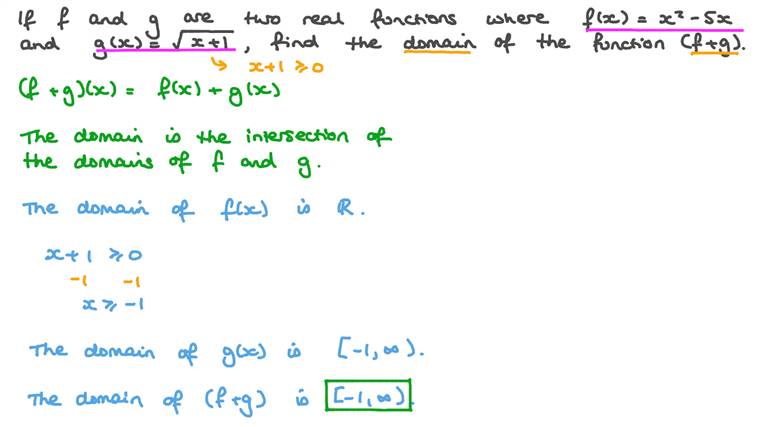 If f and g are two real functions where f(x) = x² - 5x
and g(x) = √(x+1), find the domain of the function (f+g).
x+1 ≥ 0
(f + g)(x) = f(x) + g(x)
The domain is the intersection of
the domains of f and g.
The domain of f(x) is ℝ.
x+1 ≥ 0
-1 -1
x ≥ -1
The domain of g(x) is [-1, ∞).
The domain of (f+g) is [-1, ∞).